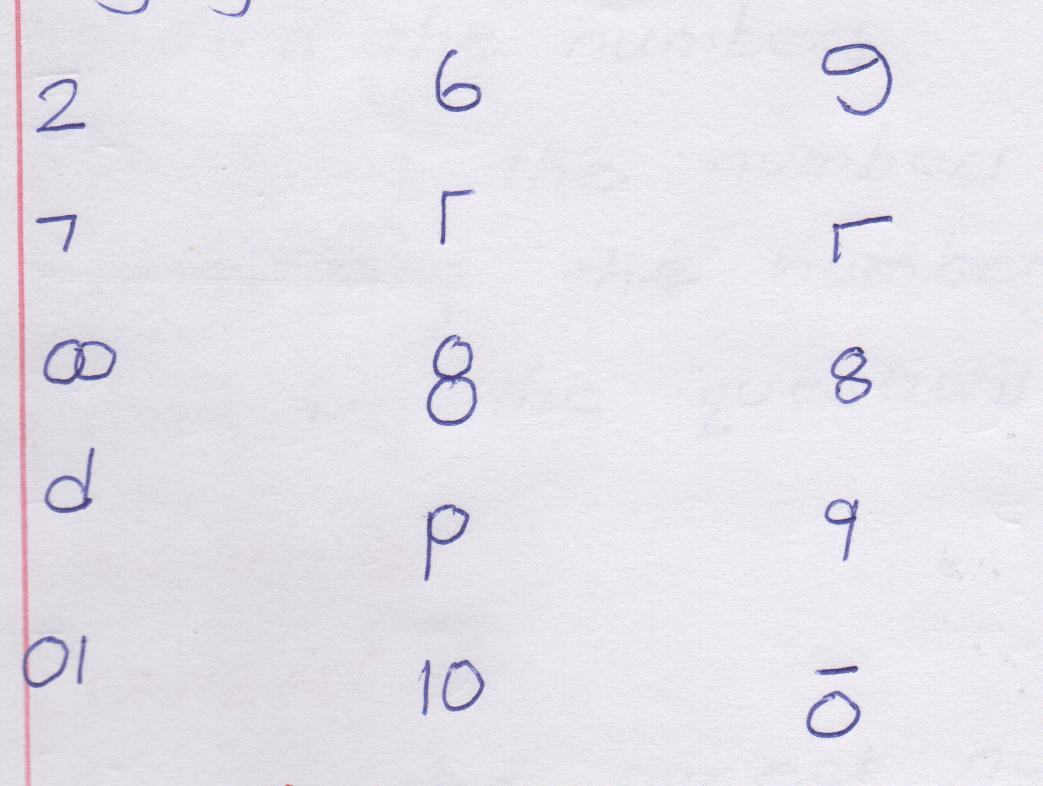 2 6 9
7 Γ Γ
8 8
d p 9
01 10
0